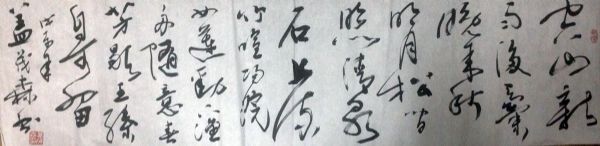 空山新
雨後天氣
晚来秋
明月松間
照清泉
石上流
竹喧歸浣
女蓮動下漁
舟随意春
芳歇王孫
自可留
年
盖茂森书